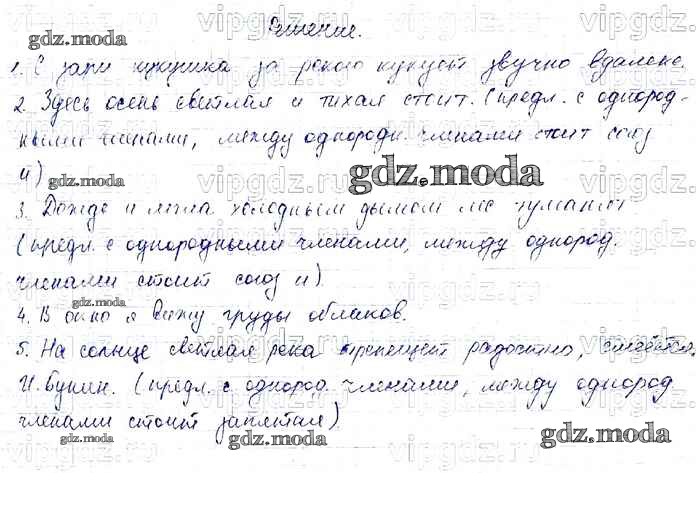 Решение.
1. С зари кукушка за рекою кукует звучно вдалеке.
2. Здесь осень светлая и тихая стоит. (предл. с однород-
ными членами, между однородн. членами стоит союз
и)
3. Дожди и мгла холодным дымом лес туманят
(предл. с однородными членами, между однород.
членами стоит союз и).
4. В окно я вижу груды облаков.
5. На солнце светлая река трепещет радостно, смеётся.
И. Бунин. (предл. с однород. членами, между однород.
членами стоит запятая).
gdz.moda
gdz.moda
gdz.moda
gdz.moda
gdz.moda
gdz.moda
gdz.moda